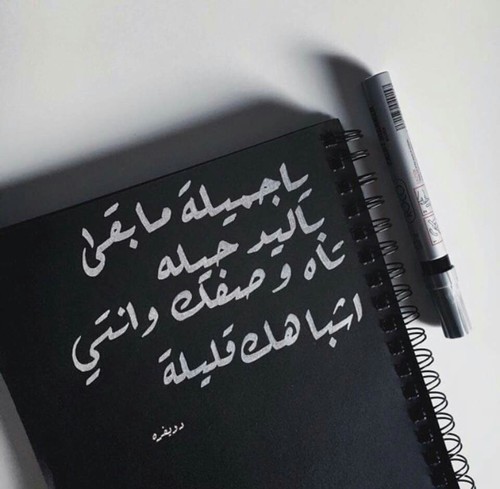 ياجميلة مابقى
باليد حيله
تاه وصفك وانتي
اشباهك قليلة
دويفره